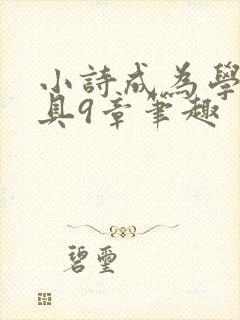 小詩成為學
具9章筆趣
碧璽